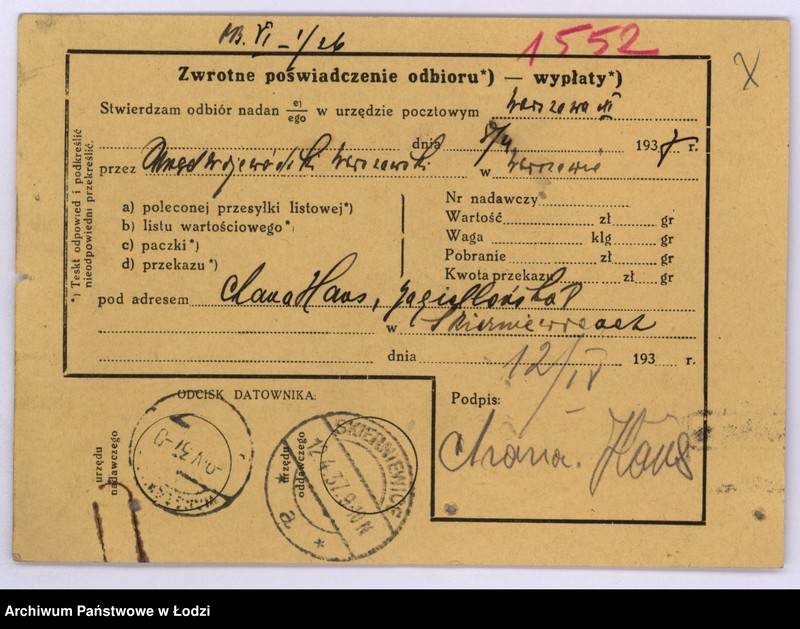 MB. VI – 1/26
1552
X
Zwrotne poświadczenie odbioru*) — wypłaty*)
Stwierdzam odbiór nadan ej/ego w urzędzie pocztowym Warszawa
dnia 1937 r.
przez Urząd Wojewódzki Warszawski w Warszawie
*) Teskt odpowied i podkreślić
nieodpowiedni przekreślić.
a) poleconej przesyłki listowej*)
b) listu wartościowego*)
c) paczki*)
d) przekazu*)
Nr nadawczy
Wartość zł gr
Waga klg gr
Pobranie zł gr
Kwota przekazu zł gr
pod adresem Chana Haus, Jagiellońska
w Skierniewicach
dnia 12/IV 193 r.
ODCISK DATOWNIKA:
urzędu
nadawczego
urzędu
oddawczego
SKIERNIEWICE
12.4.37.9
a
Podpis:
Chana. Haus
Archiwum Państwowe w Łodzi